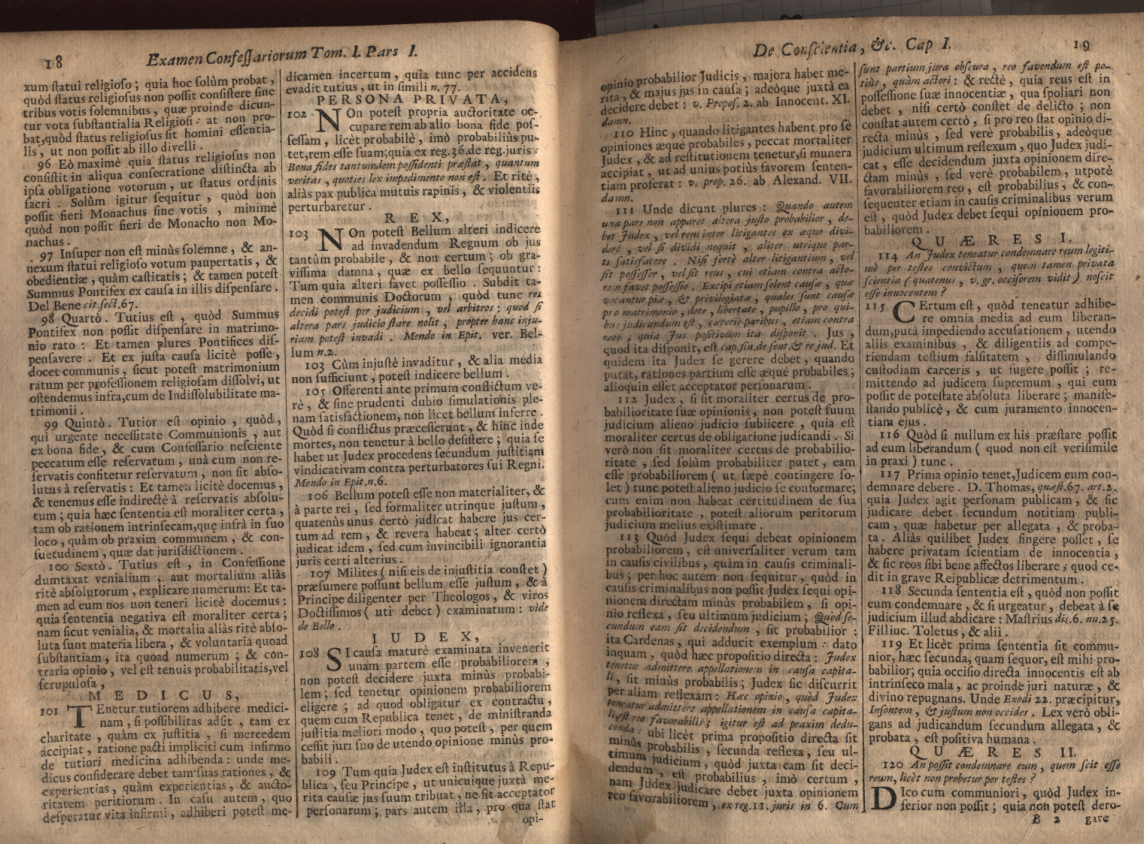 18
Examen Confessariorum Tom. I. Pars I.
xum statui religioso; quia hoc solùm probat,
quòd status religiosus non possit consistere sine
tribus votis solemnibus, quæ proinde dicun-
tur vota substantialia Religiosi: at non pro-
bat, quòd status religiosus sit homini essentia-
lis, ut non possit ab illo divelli.
96 Eò maximè quia status religiosus non
consistit in aliqua consecratione distincta ab
ipsa obligatione votorum, ut status ordinis
sacri. Solùm igitur sequitur, quòd non
possit fieri Monachus sine votis, minimè
quòd non possit fieri de Monacho non Mo-
nachus.
97 Insuper non est minùs solemne, & an-
nexum statui religioso votum paupertatis, &
obedientiæ, quàm castitatis; & tamen potest
Summus Pontifex ex causa in illis dispensare.
Del Bene cit. sect. 67.
98 Quartò. Tutius est, quòd Summus
Pontifex non possit dispensare in matrimo-
nio rato: Et tamen plures Pontifices dis-
pensavere. Et ex justa causa licitè posse,
docet communis, sicut potest matrimonium
ratum per professionem religiosam dissolvi, ut
ostendemus infra, cum de Indissolubilitate ma-
trimonii.
99 Quintò. Tutior est opinio, quòd,
qui urgente necessitate Communionis, aut
ex bona fide, & cum Confessario nesciente
peccatum esse reservatum, unà cum non re-
servatis confitetur reservatum, non sit abso-
lutus à reservatis: Et tamen licitè docemus,
& tenemus esse indirectè à reservatis absolu-
tum; quia hæc sententia est moraliter certa,
tam ob rationem intrinsecam, que infrà in suo
loco, quàm ob praxim communem, & con-
suetudinem, quæ dat jurisdictionem.
100 Sextò. Tutius est, in Confessione
dumtaxat venialium, aut mortalium aliàs
ritè absolutorum, explicare numerum: Et ta-
men ad eum nos non teneri licitè docemus;
quia sententia negativa est moraliter certa;
nam sicut venialia, & mortalia aliàs ritè abso-
luta sunt materia libera, & voluntaria quoad
substantiam, ita quoad numerum; & con-
traria opinio, vel est tenuis probabilitatis, vel
scrupulosa,
MEDICUS,
101 TEnetur tutiorem adhibere medici-
nam, si possibilitas adsit, tam ex
charitate, quàm ex justitia, si mercedem
accipiat, ratione pacti impliciti cum infirmo
de tutiori medicina adhibenda: unde me-
dicus considerare debet tam suas rationes, &
experientias, quàm experientias, & aucto-
ritatem peritiorum. In casu autem, quo
desperatur vita infirmi, adhiberi potest me-
dicamen incertum, quia tunc per accidens
evadit tutius, ut in simili n. 77.
PERSONA PRIVATA,
102 NOn potest propria auctoritate oc-
cupare rem ab alio bona fide pos-
sessam, licèt probabilè, imò probabiliùs pu-
tet, rem esse suam; quia ex reg. 36. de reg. juris:
Bona fides tantundem possidenti præstat, quantum
veritas, quoties lex impedimento non est. Et ritè,
aliàs pax publica mutuis rapinis, & violentiis
perturbaretur.
REX,
103 NOn potest Bellum alteri indicere
ad invadendum Regnum ob jus
tantùm probabile, & non certum; ob gra-
vissima damna, quæ ex bello sequuntur:
Tum quia alteri favet possessio. Subdit ta-
men communis Doctorum, quòd tunc res
decidi potest per judicium, vel arbitros: quòd si
altera pars judicio stare nolit, propter hanc inju-
riam potest invadi. Mendo in Epit. ver. Bel-
lum n. 2.
103 Cùm injustè invaditur, & alia media
non sufficiunt, potest indicere bellum.
105 Offerenti ante primum conflictum ve-
rè, & sine prudenti dubio simulationis ple-
nam satisfactionem, non licet bellum inferre.
Quòd si conflictus præcesserunt, & hinc inde
mortes, non tenetur à bello desistere; quia se
habet ut Judex procedens secundum justitiam
vindicativam contra perturbatores sui Regni.
Mendo in Epit. n. 6.
106 Bellum potest esse non materialiter, &
à parte rei, sed formaliter utrinque justum,
quatenùs unus certò judicat habere jus cer-
tum ad rem, & revera habeat; alter certò
judicat idem, sed cum invincibili ignorantia
juris certi alterius.
107 Milites (nisi eis de injustitia constet)
præsumere possunt bellum esse justum, & à
Principe diligenter per Theologos, & viros
Doctissimos (uti debet) examinatum: vide
de Bello.
IUDEX,
108 SI causa maturè examinata invenerit
unam partem esse probabiliorem,
non potest decidere juxta minùs probabi-
lem; sed tenetur opinionem probabiliorem
eligere; ad quod obligatur ex contractu,
quem cum Republica tenet, de ministranda
justitia meliori modo, quo potest, per quem
cessit juri suo de utendo opinione minùs pro-
babili.
109 Tum quia Judex est institutus à Repu-
blica, seu Principe, ut unicuique juxtà me-
rita causæ jus suum tribuat, ne sit acceptator
personarum; pars autem illa, pro qua stat
opi-
De Conscientia, &c. Cap I.
19
opinio probabilior Judicis, majora habet me-
rita, & majus jus in causa; adeòque juxtà ea
decidere debet: v. Propos. 2. ab Innocent. XI.
damn.
110 Hinc, quando litigantes habent pro se
opiniones æquè probabiles, peccat mortaliter
Judex, & ad restitutionem tenetur, si munera
accipiat, ut ad unius potiùs favorem senten-
tiam proferat: v. prop. 26. ab Alexand. VII.
damn.
111 Unde dicunt plures: Quando autem
una pars non apparet altera justo probabilior, de-
bet Judex, vel rem inter litigantes ex æquo divi-
dere, vel si dividi nequit, aliter utrique par-
ti satisfacere. Nisi fortè alter litigantium, vel
sit possessor, vel sit reus, cui etiam contra acto-
rem favet possessio. Excipi etiam solent causæ, quæ
vocantur piæ, & privilegiatæ, quales sunt causæ
pro matrimonio, dote, libertate, pupillo; pro qui-
bus judicandum est, cæteris paribus, etiam contra
reos; quia Jus positivum ita disponit. Jus,
quod ita disponit, est cap. fin. de sent. & re jud. Et
quidem ita Judex se gerere debet, quando
putat, rationes partium esse æquè probabiles;
alioquin esset acceptor personarum.
112 Judex, si sit moraliter certus de pro-
babilioritate suæ opinionis, non potest suum
judicium alieno judicio subiicere, quia est
moraliter certus de obligatione judicandi. Si
verò non sit moraliter certus de probabilio-
ritate, sed solùm probabiliter putet, eam
esse probabiliorem (ut sæpè contingere so-
let) tunc potest alieno judicio se conformare;
cum enim non habeat certitudinem de sua
probabilioritate, potest aliorum peritorum
judicium melius existimare.
113 Quòd Judex sequi debeat opinionem
probabiliorem, est universaliter verum tam
in causis civilibus, quàm in causis criminali-
bus; per hoc autem non sequitur, quòd in
causis criminalibus non possit Judex sequi opi-
nionem directam minùs probabilem, si opi-
nio reflexa, seu ultimum judicium; Quòd se-
cundum eam sit decidendum, sit probabilior:
ita Cardenas, qui adducit exemplum: dato
inquam, quòd hæc propositio directa: Judex
tenetur admittere appellationem in causa capita-
li, sit minùs probabilis; Judex sic discurrit
per aliam reflexam: Hæc opinio, quòd Judex
teneatur admittere appellationem in causa capita-
li, est reo favorabilis; igitur est ad praxim dedu-
cenda: ubi licèt prima propositio directa sit
minùs probabilis, secunda reflexa, seu ul-
timum judicium, quòd juxta eam sit deci-
dendum, est probabilius, imò certum,
nam Judex judicare debet juxta opinionem
reo favorabiliorem, ex reg. 11. juris in 6. Cum
sunt partium jura obscura, reo favendum est po-
tiùs, quàm actori: & rectè, quia reus est in
possessione suæ innocentiæ, qua spoliari non
debet, nisi certò constet de delicto; non
constat autem certò, si pro reo stat opinio di-
recta minùs, sed verè probabilis, adeòque
judicium ultimum reflexum, quo Judex judi-
cat, esse decidendum juxta opinionem dire-
ctam minùs, sed verè probabilem, utpotè
favorabiliorem reo, est probabilius, & con-
sequenter etiam in causis criminalibus verum
est, quòd Judex debet sequi opinionem pro-
babiliorem.
QUÆRES I.
114 An Judex teneatur condemnare reum legiti-
mè per testes convictum, quem tamen privata
scientia (quatenus, v. gr. occisorem vidit) noscit
esse innocentem?
115 CErtum est, quòd teneatur adhibe-
re omnia media ad eum liberan-
dum, putà impediendo accusationem, utendo
aliis examinibus, & diligentiis ad compe-
riendam testium falsitatem, dissimulando
custodiam carceris, ut fugere possit; re-
mittendo ad judicem supremum, qui eum
possit de potestate absoluta liberare; manife-
stando publicè, & cum juramento innocen-
tiam ejus.
116 Quòd si nullum ex his præstare possit
ad eum liberandum (quod non est verisimile
in praxi) tunc.
117 Prima opinio tenet, Judicem eum con-
demnare debere. D. Thomas, quæst. 67. art. 2.
quia Judex agit personam publicam, & sic
judicare debet secundum notitiam publi-
cam, quæ habetur per allegata, & proba-
ta. Aliàs quilibet Judex fingere posset, se
habere privatam scientiam de innocentia,
& sic reos sibi bene affectos liberare; quod ce-
dit in grave Reipublicæ detrimentum.
118 Secunda sententia est, quòd non possit
eum condemnare, & si urgeatur, debeat à se
judicium illud abdicare: Mastrius dis. 6. nu. 25.
Filliuc. Toletus, & alii.
119 Et licèt prima sententia sit commu-
nior, hæc secunda, quam sequor, est mihi pro-
babilior; quia occisio directa innocentis est ab
intrinseco mala, ac proinde juri naturæ, &
divino repugnans. Unde Exodi 22. præcipitur,
Insontem, & justum non occides. Lex verò obli-
gans ad judicandum secundum allegata, &
probata, est positiva humana.
QUÆRES II.
120 An possit condemnare eum, quem scit esse
reum, licèt non probetur per testes?
DIco cum communiori, quòd Judex in-
ferior non possit; quia non potest dero-
B 2 gare